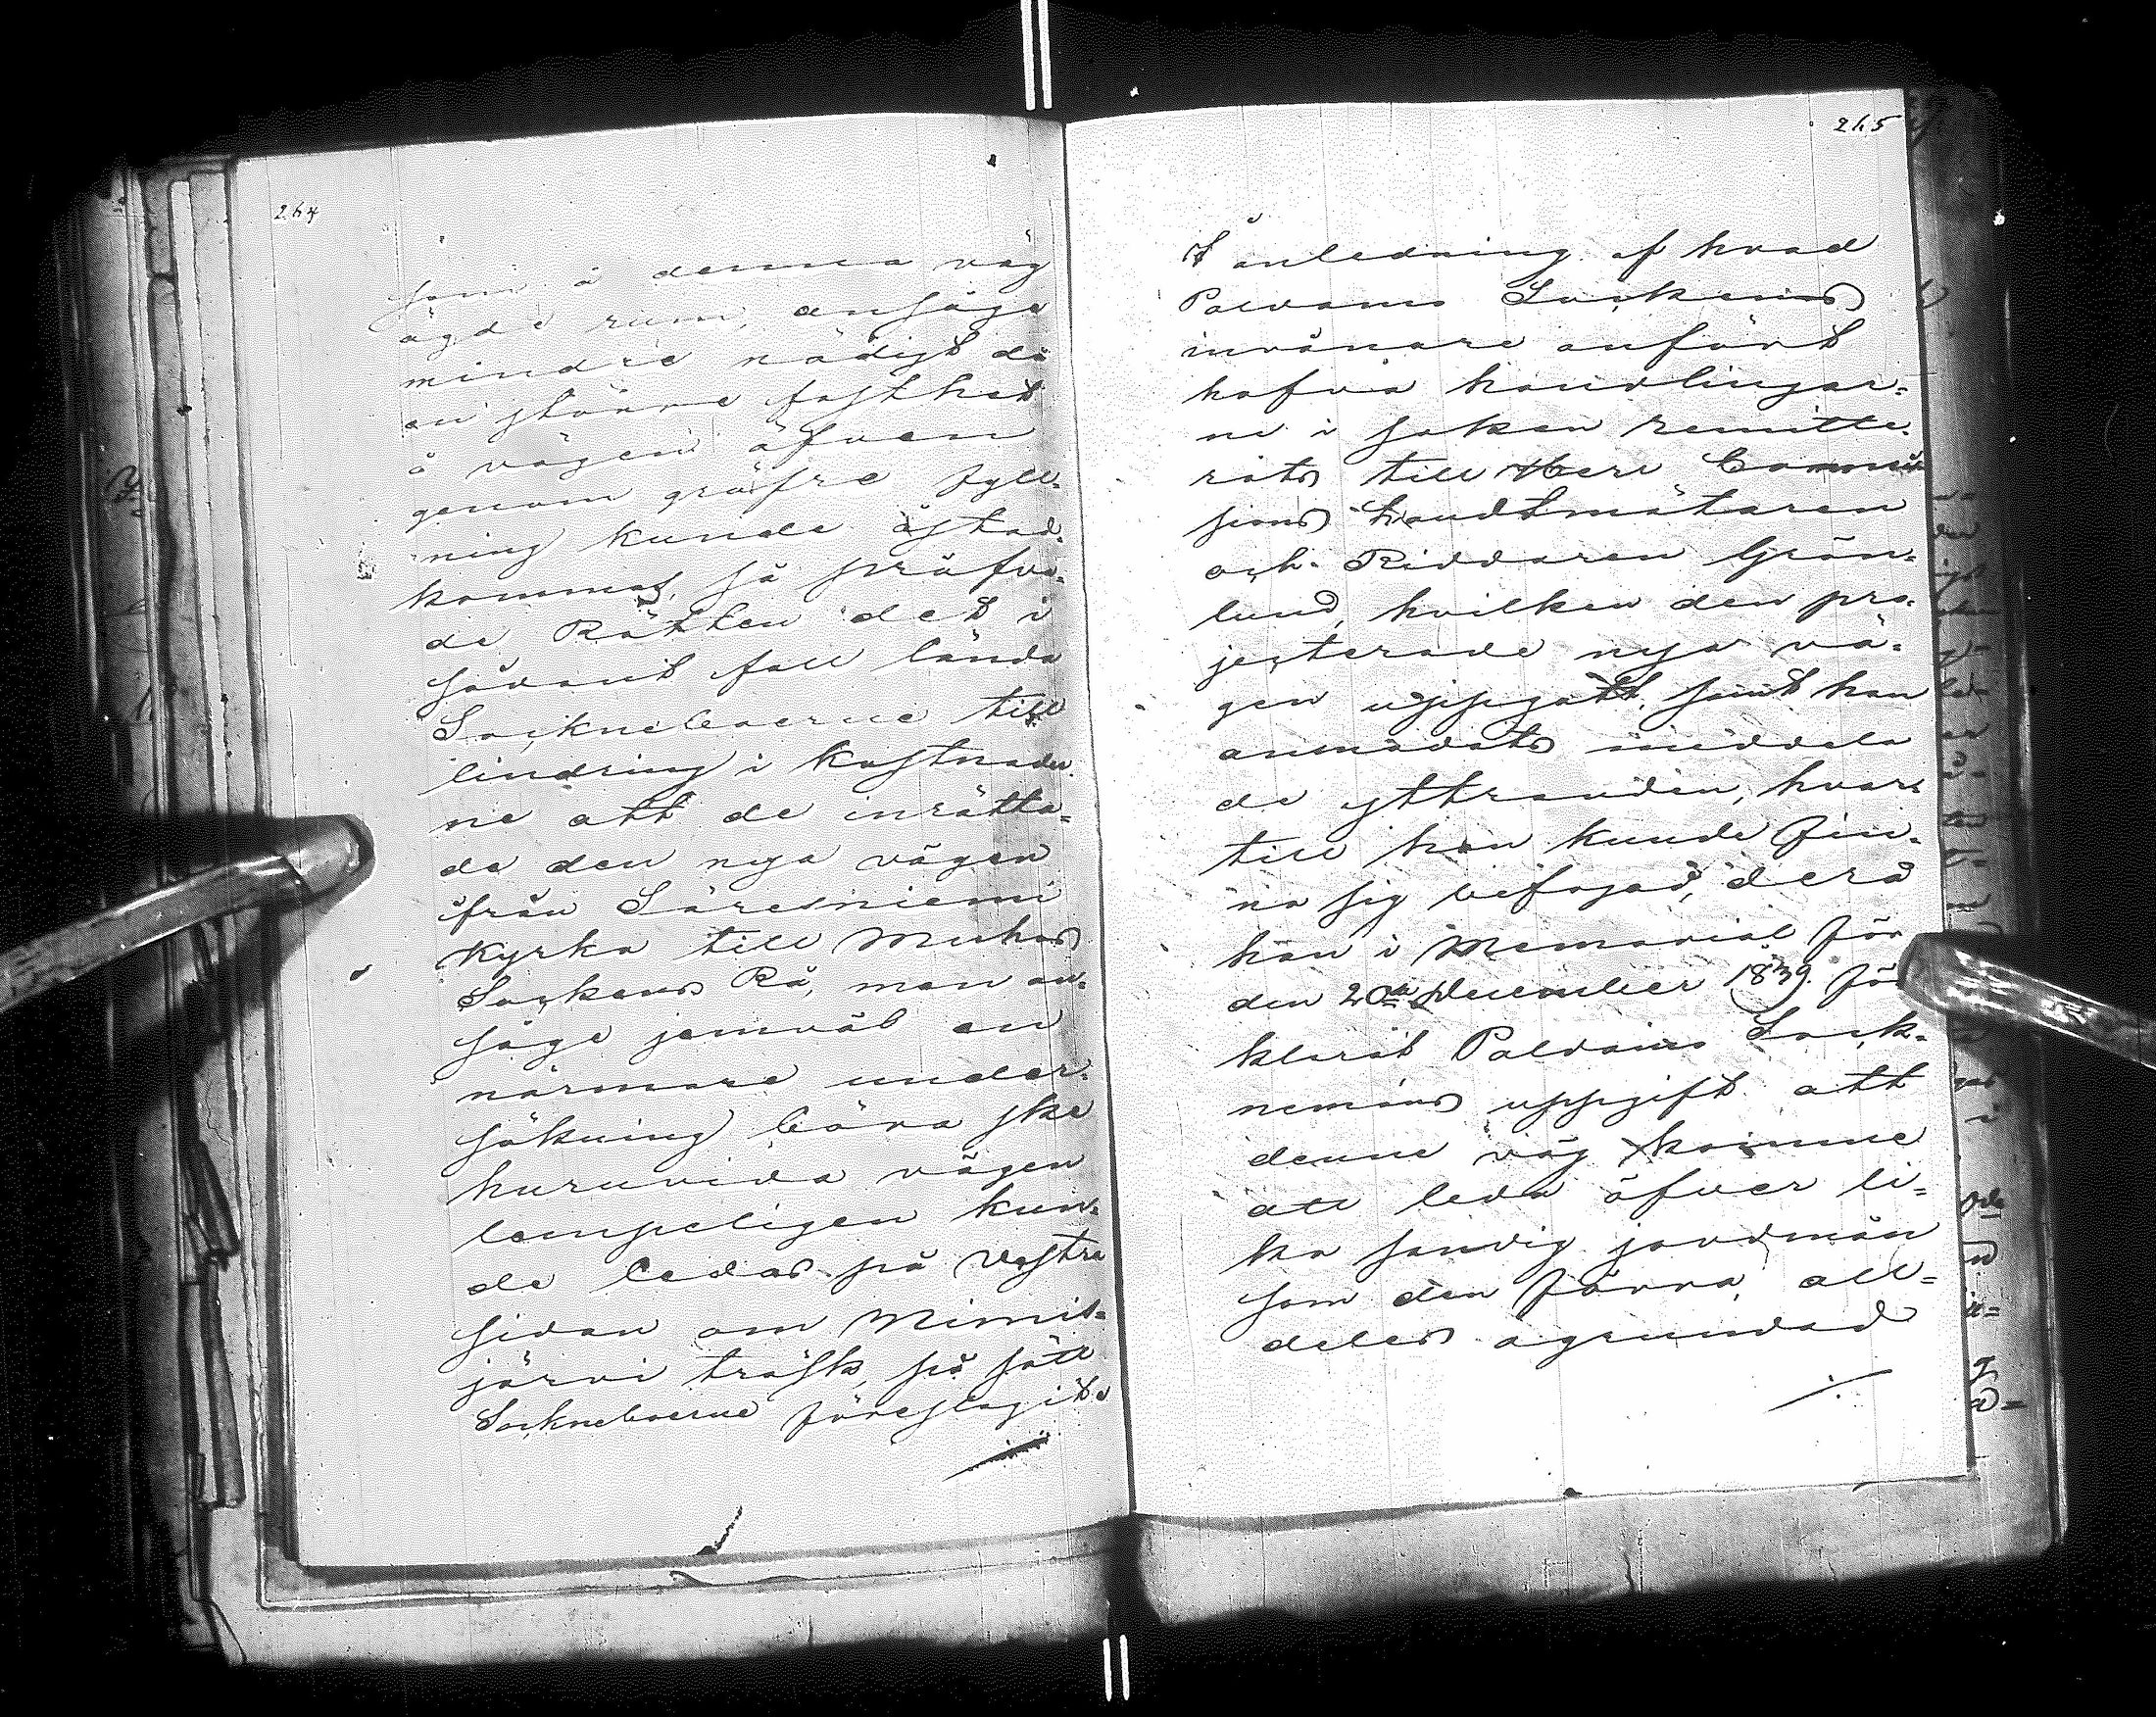 264
som å denna väg
ägde rum, ansåge
mindre nödigt då
en större fasthet
å vägen äfven
genom gröfre fyll-
ning kunde åstad-
kommas, så pröfva-
de Rätten det i
sådant fall lända
Sockneboerne till
lindring i kostnader-
ne att de inrätta-
de den nya vägen
ifrån Säresniemi
Kyrka till Muhos
Sockens Rå, man an-
såge jemväl en
närmare under-
sökning böra ske
huruvida vägen
lempeligen kun-
de ledas på Vestra
sidan om Nimis-
järvi träsk, på sätt
Sockneboerne föreslagit.
265
I anledning af hvad
Paldamo Sockens
invånare anfört
hafva handlingar-
ne i saken remitte-
rats till Herr Commis-
sions Landtmätaren
och Riddaren Grön-
lund, hvilken den pro-
jecterade nya vä-
gen uppgått, samt han
anmodats meddela
de yttranden, hvar-
till han kunde fin-
na sig befogad, derå
han i Memorial för
den 20de December 1839. för-
klarat Paldamo Sock-
nemäns uppgift att
denne väg komme
att leda öfver li-
ka sandig jordmån
som den förra, all-
deles ogrundad
./.